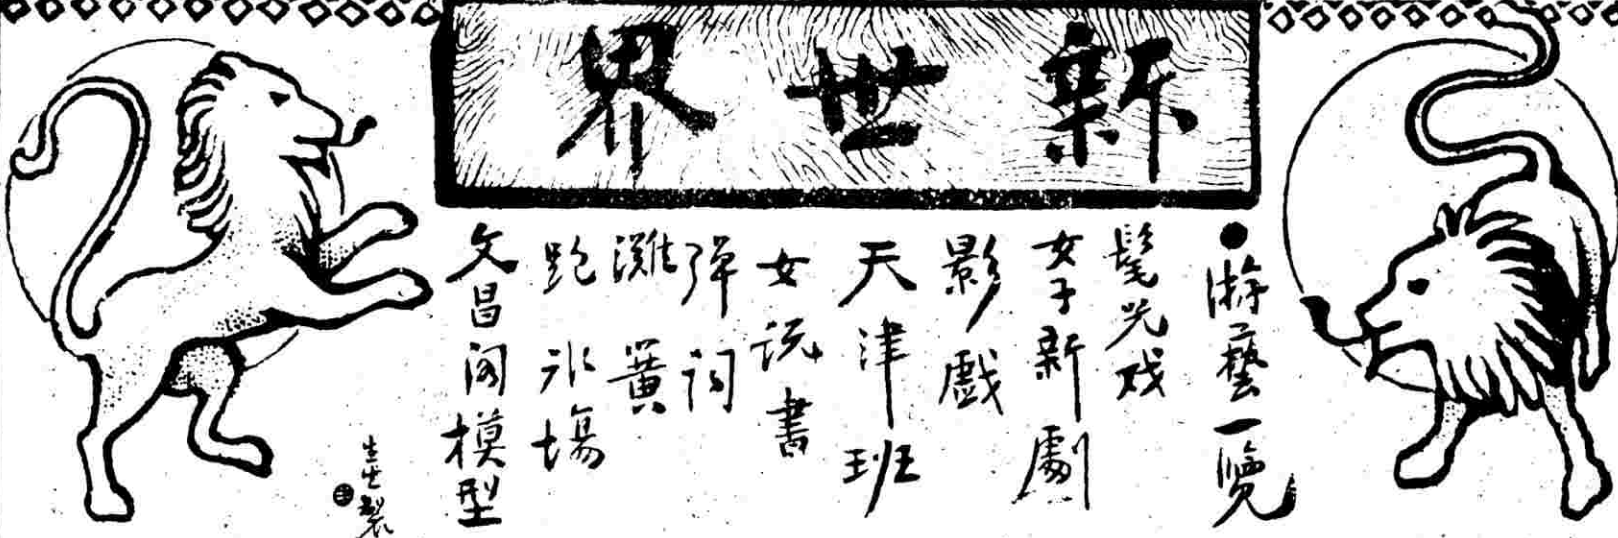 新世界
●游藝一覽
髦児戏
女子新劇
影戲
天津班
女説書
弹词
灘簧
跑冰場
文昌阁模型